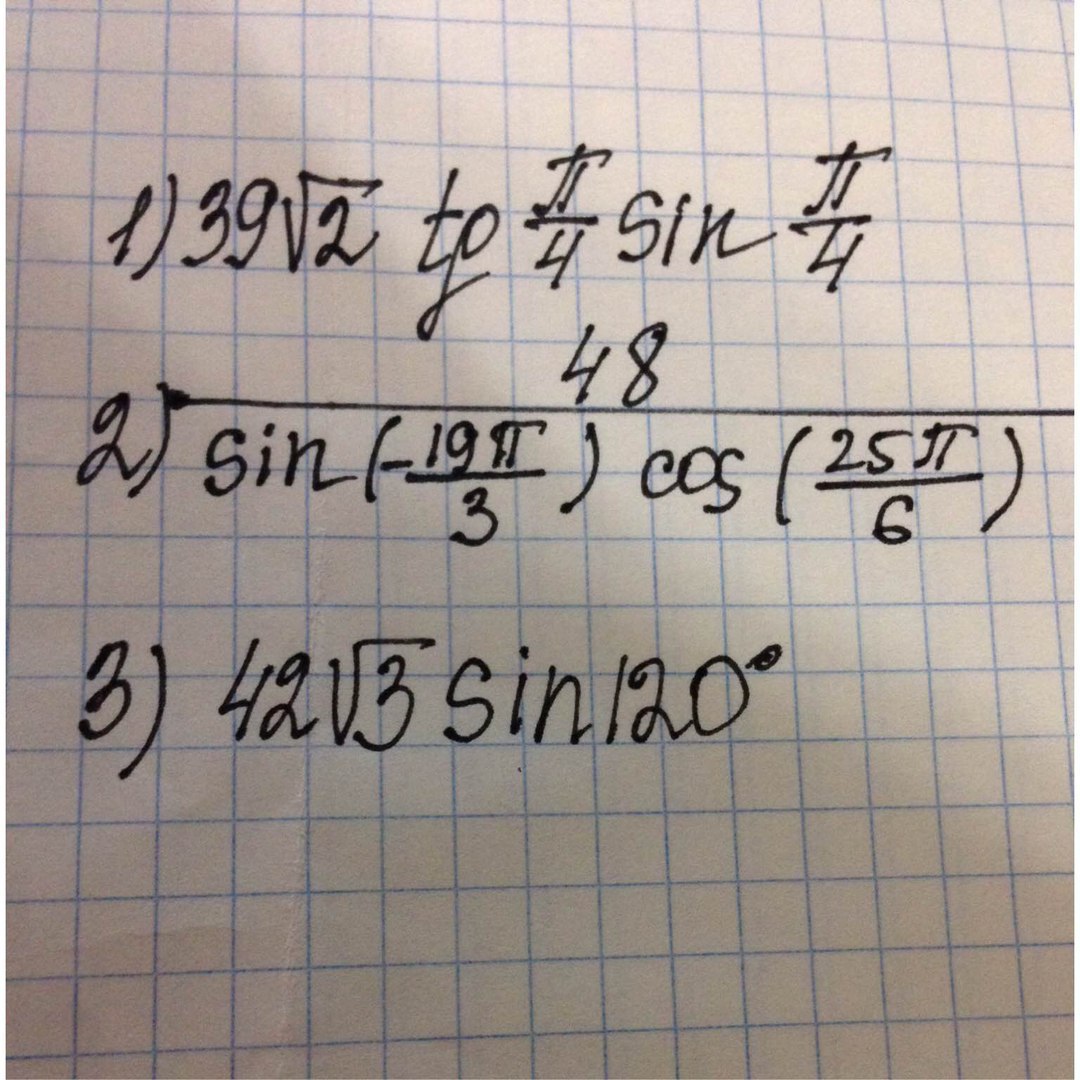 1) 39√2 tg π/4 sin π/4
48
2) sin (-19π/3) cos (25π/6)
3) 42√3 sin 120°